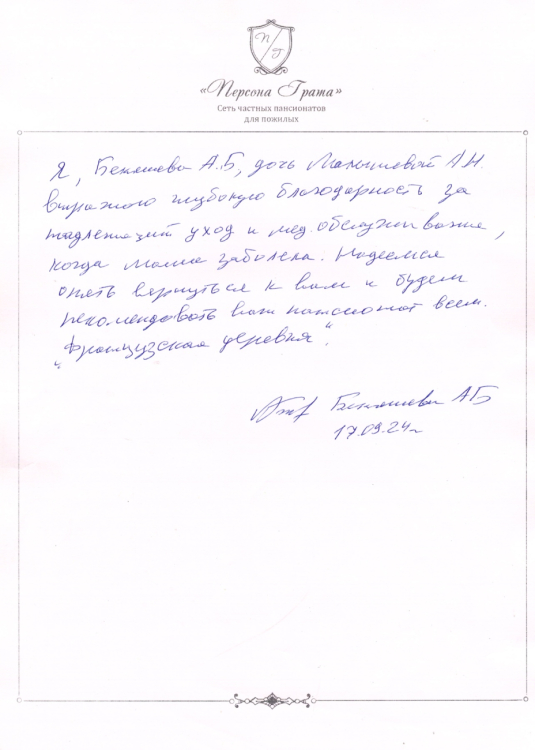 П Г
«Персона Грата»
Сеть частных пансионатов
для пожилых
Я, Бекяшева А.Б, дочь Малышевой А.Н.
выражаю глубокую благодарность за
надлежащий уход и мед. обслуживание,
когда мама заболела. Надеемся
опять вернуться к вам и будем
рекомендовать ваш пансионат всем.
"Французская деревня".
Бекяшева АБ
17.09.24г